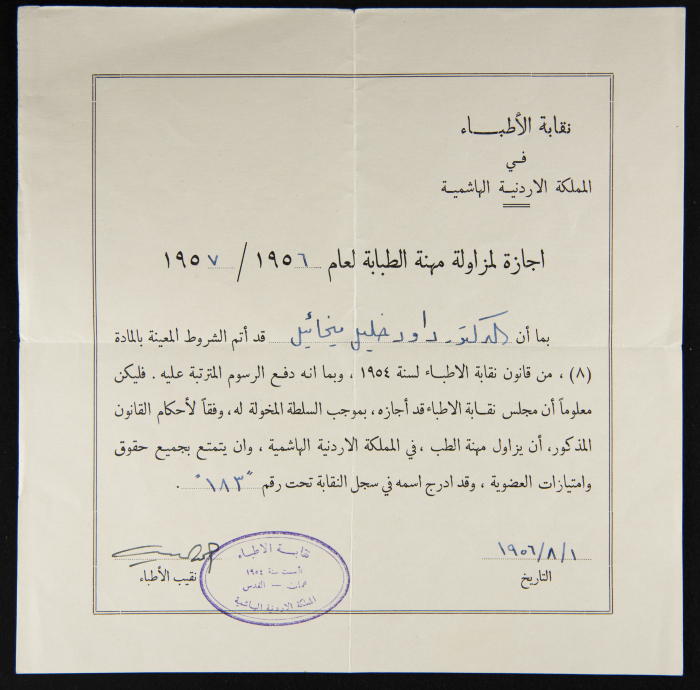 نقابة الأطبـــاء
في
المملكة الاردنية الهاشمية
اجازة لمزاولة مهنة الطبابة لعام ١٩٥٦ / ١٩٥٧
بما أن الدكتور داود خليل ميخائيل قد أتم الشروط المعينة بالمادة
(٨) ، من قانون نقابة الاطباء لسنة ١٩٥٤ ، وبما انه دفع الرسوم المترتبة عليه . فليكن
معلوماً أن مجلس نقابة الاطباء قد أجازه ، بموجب السلطة المخولة له، وفقاً لأحكام القانون
المذكور، أن يزاول مهنة الطب ، في المملكة الاردنية الهاشمية ، وان يتمتع بجميع حقوق
وامتيازات العضوية ، وقد ادرج اسمه في سجل النقابة تحت رقم "١٨٣" .
١٩٥٦/٨/١
التاريخ
نقيب الأطباء
نقابة الاطباء
تأسست سنة ١٩٥٤
عمان — القدس
المملكة الاردنية الهاشمية